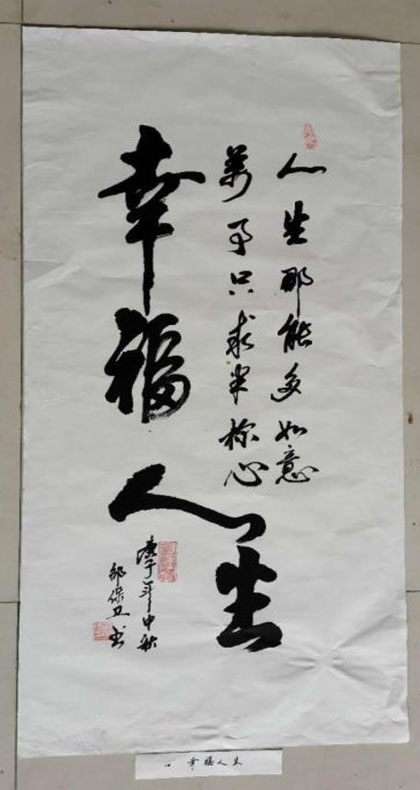 人生那能多如意
萬事只求半称心
幸福人生
庚子年中秋
邹保卫书
幸福人生